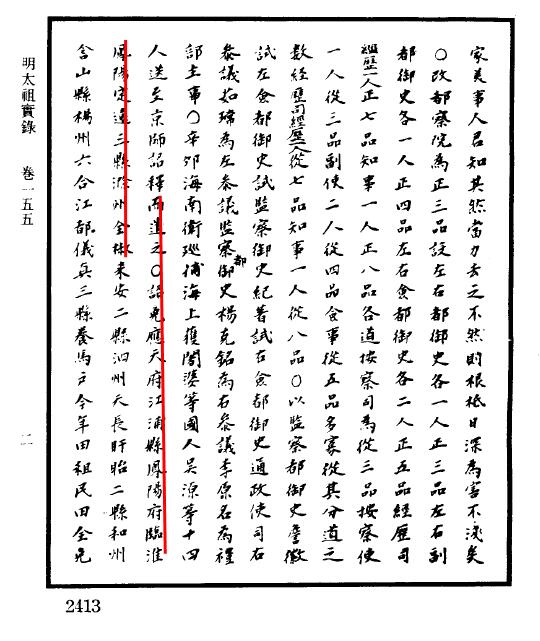 家美事人君知其然當力去之不然則根柢日深為害不浅矣
○改都察院為正三品設左右都御史各一人正三品左右副
都御史各一人正四品左右僉都御史各二人正五品經歷司
經歷一人正七品知事一人正八品各道按察司為從三品按察使
一人從三品副使二人從四品僉事從五品多寡從其分道之
數經歷司經歷一人從七品知事一人從八品○以監察都御史詹徽
試左僉都御史試監察御史紀著試右僉都御史通政使司右
參議如瑋為左參議監察都御史楊克銘為右參議李原名為禮
部主事○辛卯海南衛巡捕海上獲闍婆等國人吴源等十四
人送至京師詔釋而遣之○詔免應天府江浦縣鳳陽府臨淮
鳳陽定遠三縣滁州全椒來安二縣泗州天長盱眙二縣和州
含山縣楊州六合江都儀真三縣養馬戶今年田租民田全免
明太祖實錄 卷一五五
二
2413